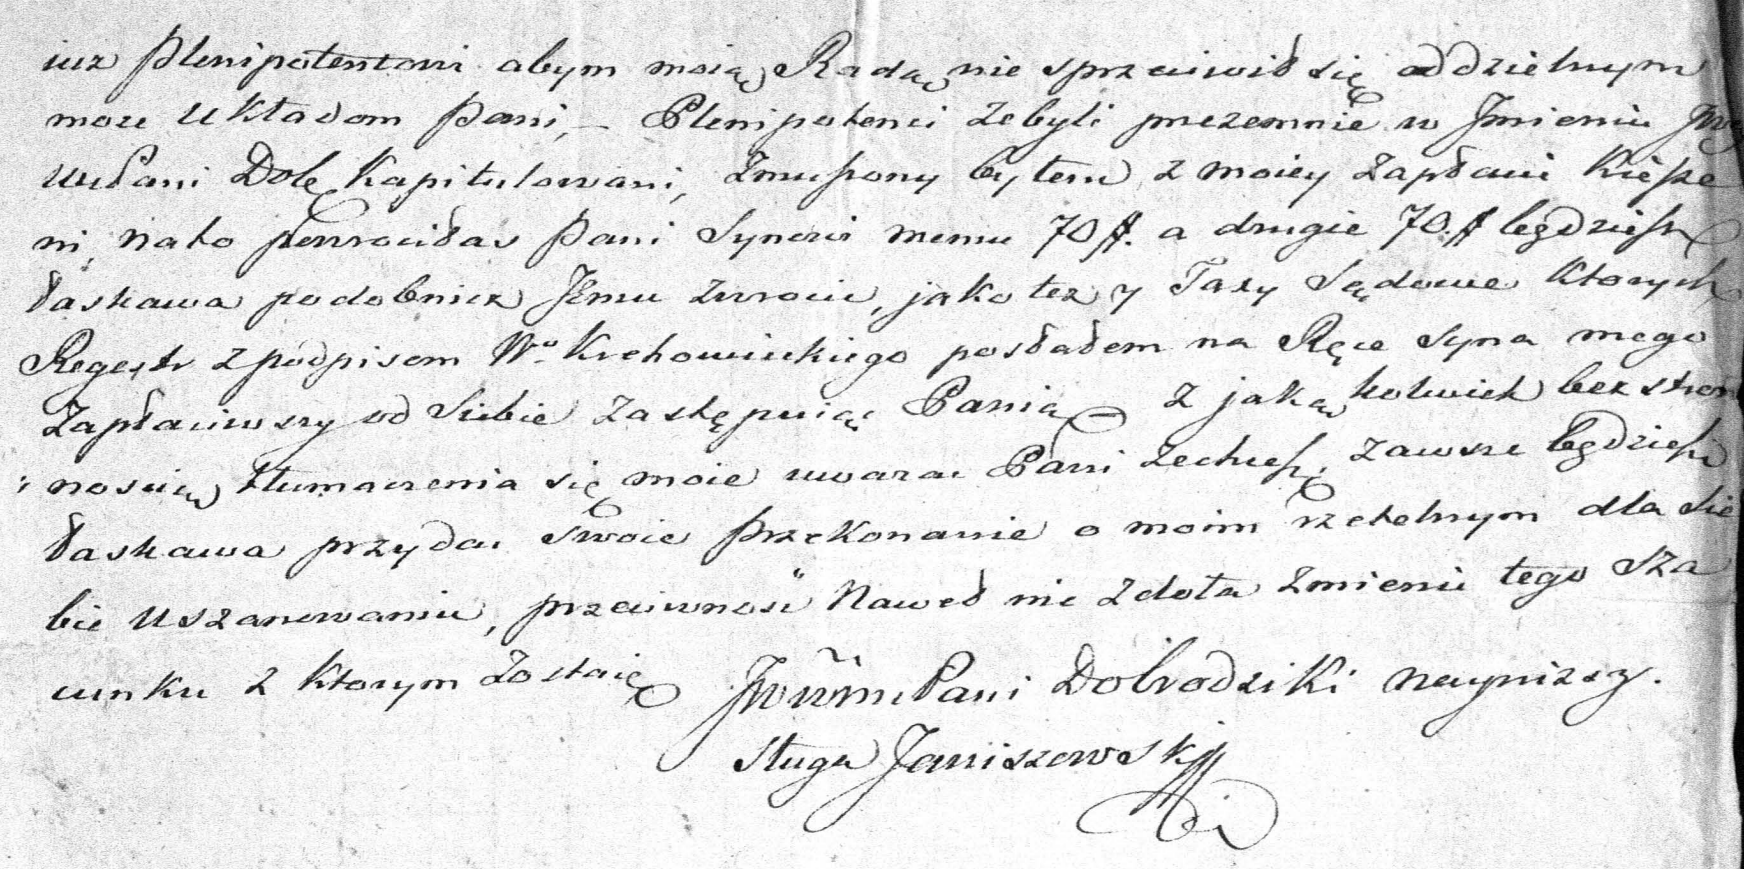 iuz Plenipotentom abym moią Radą nie sprzeciwił się oddzielnym
moze Układom Pani, – Plenipotenci zebyli przezemnie w Jmieniu
Pani Dolę Kapitulowani, Zmuszony bytem z moiey Zapłacić Kiesze
ni, nato powrociłaś Pani Synowi memu 70 ff. a drugie 70. ff będziesz
łaskawa podobniez Jemu zwrocic, jako tez y Taxy Sądowe Ktorych
Regestr z podpisem Wo Krehowieckiego posłałem na Ręce Syna mego
Zapłaciwszy od Siebie Zastępuiąc Panią – z jaką kolwiek bezstron
nością tłumaczenia się moie uwazac Pani Zechcesz, zawsze będziesz
łaskawa przydac Swoie Przekonanie o moim rzetelnym dla Sie
bie Uszanowaniu, przeciwnosc Nawed nie zdoła zmienic tego Sza
cunku z Ktorym Zostaię
JWWmPani Dobrodziki naynizszy.
Sługa Janiszowski